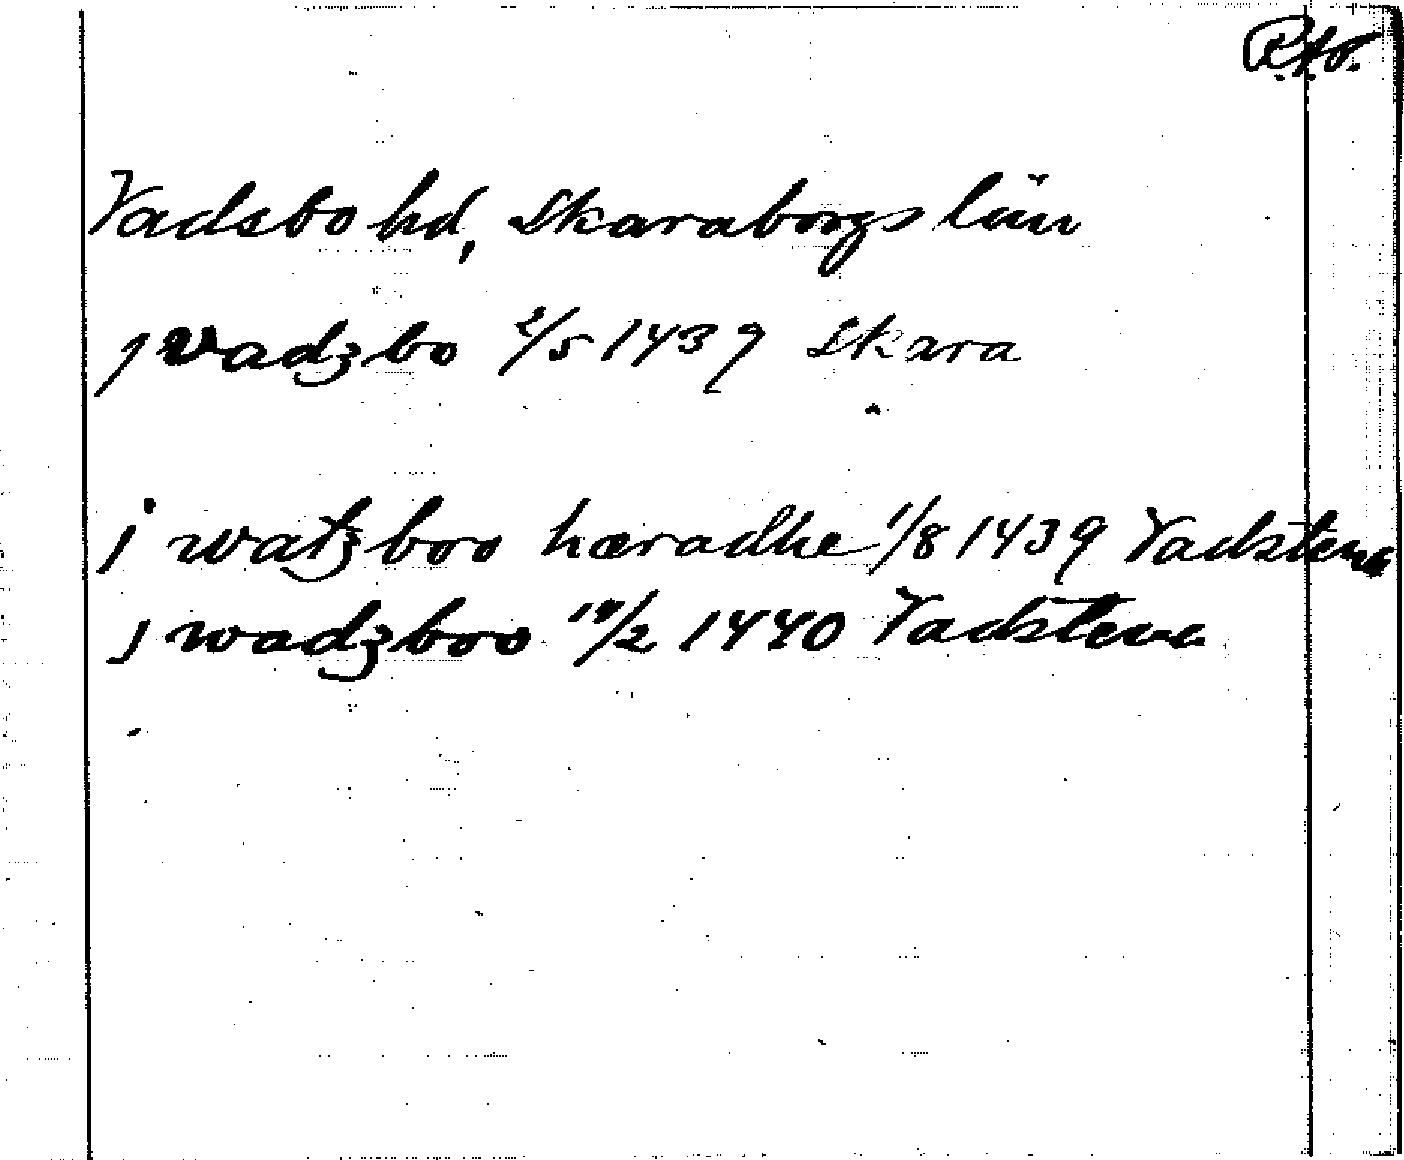 P.t.o.
Vadsbo hd, Skaraborgs län
j vadzbo 2/5 1439 Skara
j watzboo hæradhe 1/8 1439 Vadstena
j wadzboo 2 1440 Vadstena